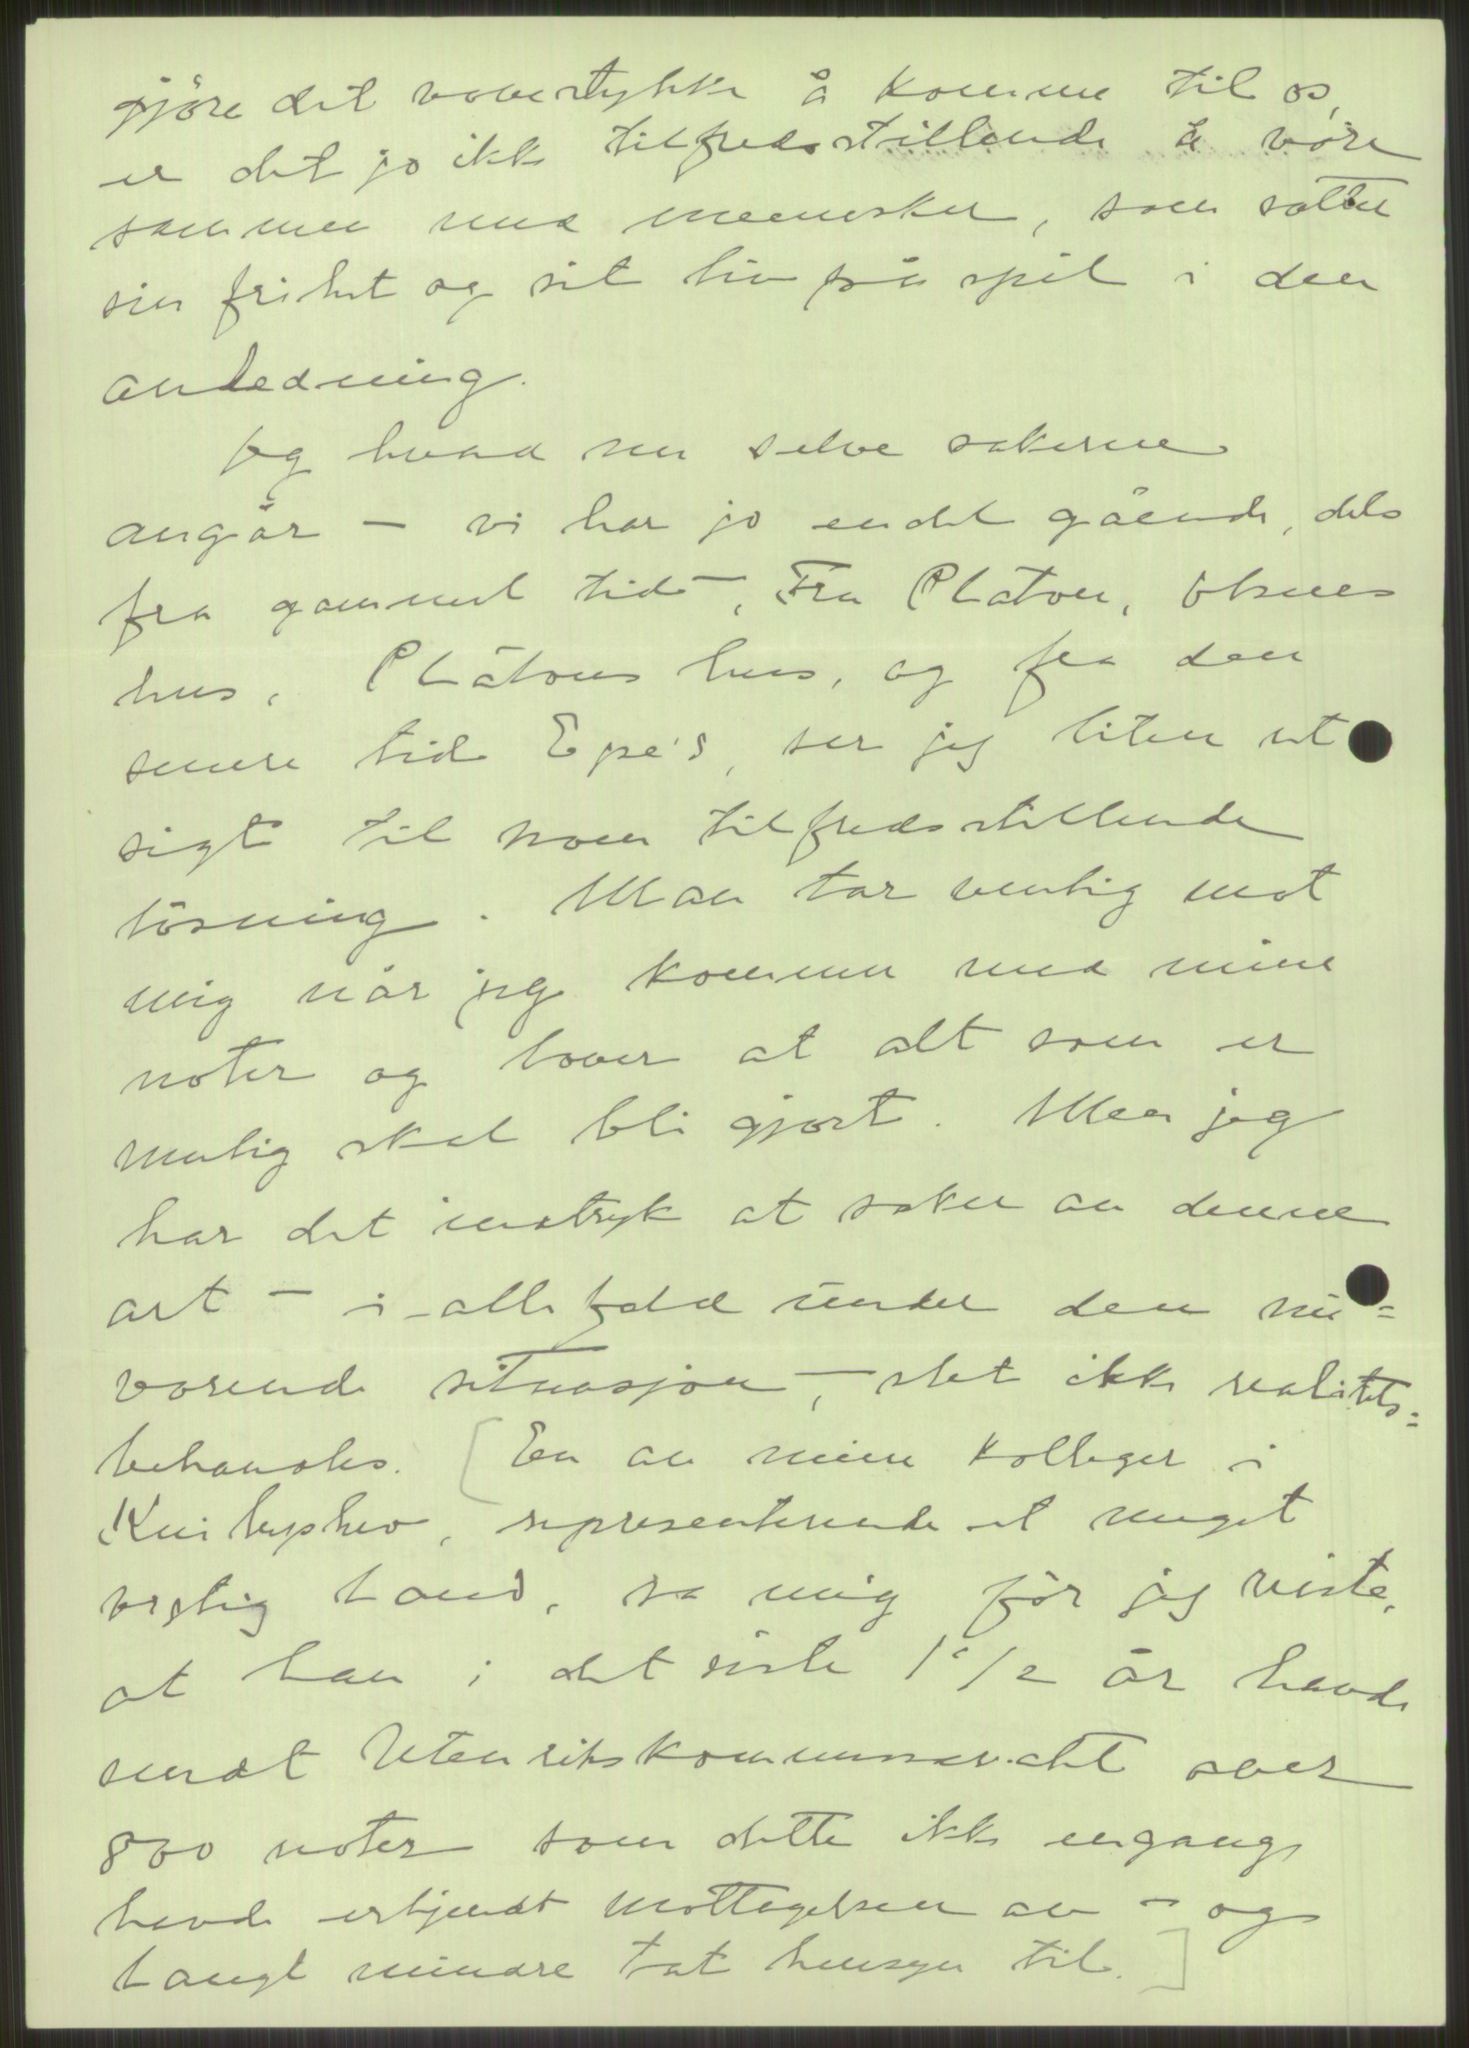 gjöre det vovestykke å komme til os,
er det jo ikke tilfredsstillende å vöre
sammen med mennesker, som setter
sin frihet og sit liv på spil i den
anledning.
Og hvad nu selve sakerne
angår – vi har jo endel gående, dels
fra gammel tid –, Fru Platou, Olsens
hus, Platous hus, og fra den
senere tid Epe's, ser jeg liten ut
sigt til noen tilfredsstillende
lösning. Man tar venlig mot
mig når jeg kommer med mine
noter og lover at alt som er
mulig skal bli gjort. Men jeg
har det inntryk at saker av denne
art – i allefald under den nu=
vorende situasjon –, slet ikke realitets=
behandles. [En av mine kolleger i
Kuibyshev, representerende et meget
vestlig land, sa mig för jeg reiste,
at han i det siste 1 1/2 år havde
sendt Utenrikskommissariatet over
800 noter som dette ikke engang
havde erkjendt mottagelsen av – og
langt mindre tat hensyn til.]